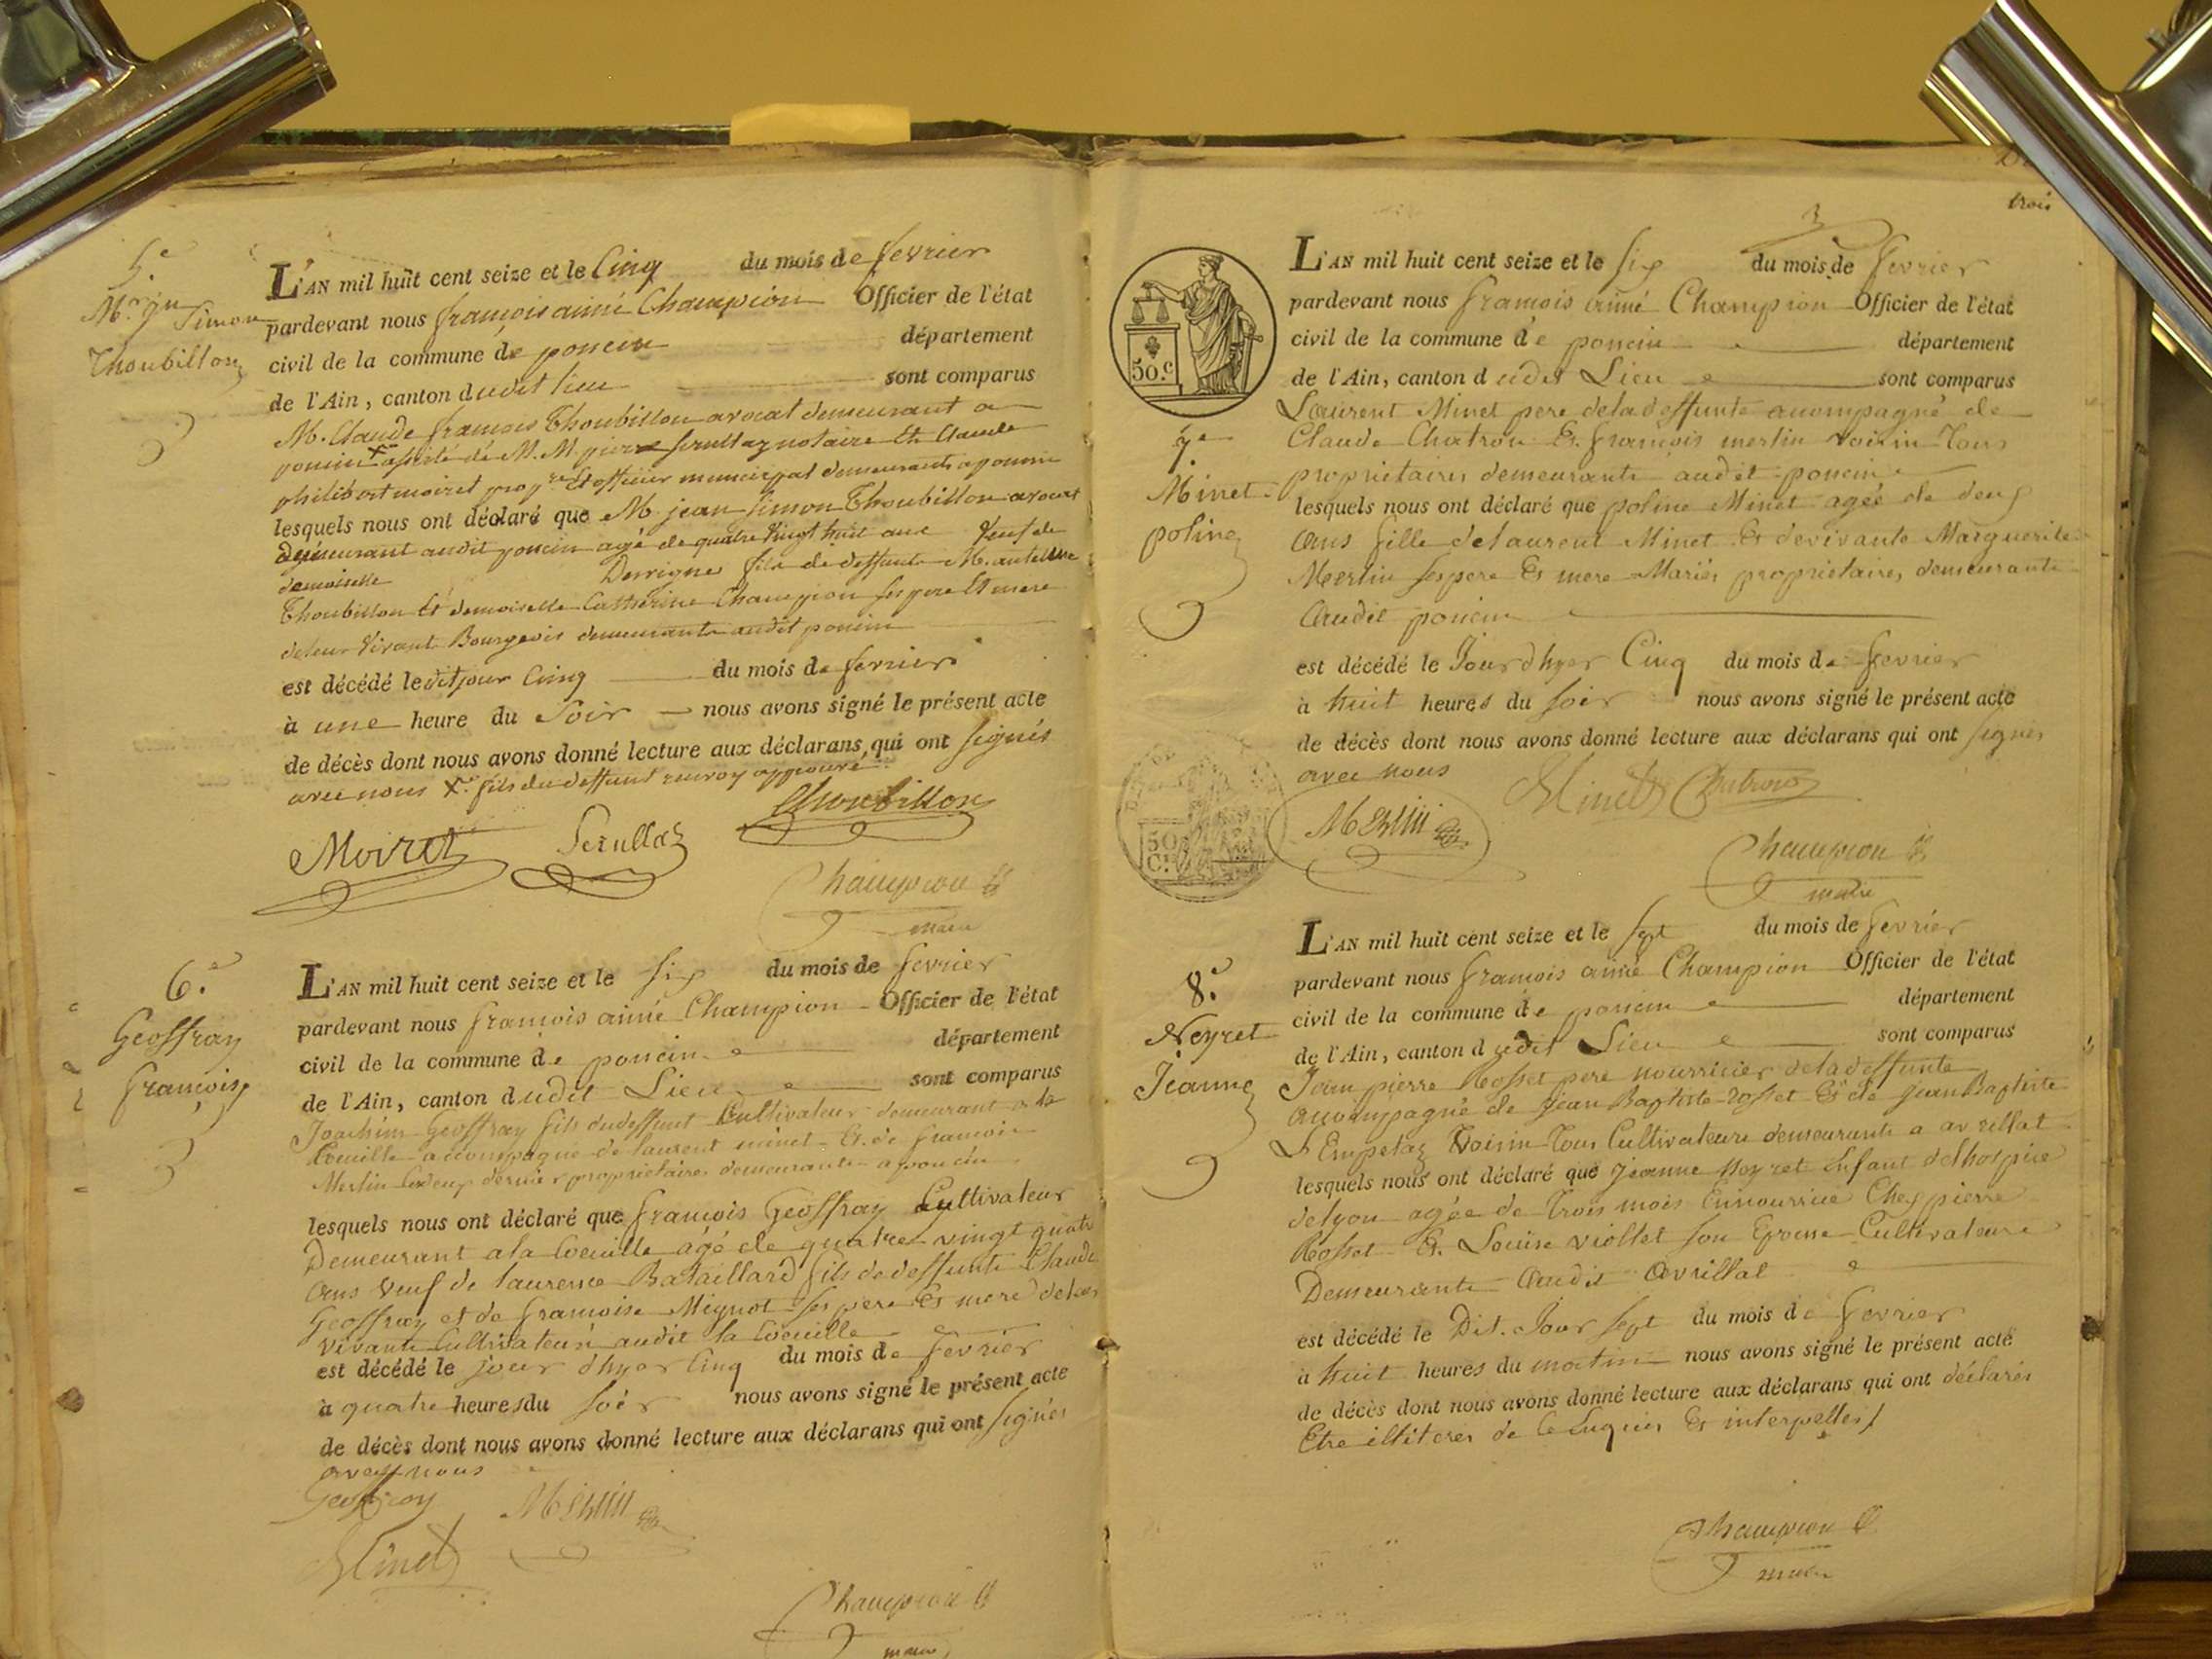 5.e
M. jn Simon
Thoubillon
L'AN mil huit cent seize et le Cinq du mois de fevrier
pardevant nous françois aimé Champion Officier de l'état
civil de la commune de poncin département
de l'Ain, canton dudit lieu sont comparus
M. Claude françois Thoubillon avocat demeurant a
poncin assisté de M. M. pierre notaire Et Claude
philibert moiret propre Et officier municipal demeurants a poncin
lesquels nous ont déclaré que M. jean Simon Thoubillon avocat
demeurant audit poncin agé de quatre Vingt huit ans Veuf de
demoiselle Derrigne fils de deffunts M. anthelme
Thoubillon Et demoiselle Catherine Champion ses pere Et mere
deleur Vivant Bourgeois demeurants audit poncin
est décédé le dit jour Cinq du mois de fevrier
à une heure du Soir nous avons signé le présent acte
de décès dont nous avons donné lecture aux déclarans qui ont signés
avec nous X fils du deffunt renvoy approuvé
Moiret Thoubillon
Champion
maire
6.e
Geoffray
françois
L'AN mil huit cent seize et le six du mois de fevrier
pardevant nous françois aimé Champion Officier de l'état
civil de la commune de poncin département
de l'Ain, canton dudit Lieu sont comparus
Joachim Geoffray fils dudeffunt Cultivateur demeurant a la
Coeuille accompagné de laurent minet Et de françois
Merlin proprietaires demeurants a poncin
lesquels nous ont déclaré que françois Geoffray Cultivateur
Demeurant ala Coeuille agé de quatre vingt quatre
ans Veuf de laurence Bataillard fils de deffunts Claude
Geoffray et de françoise Mignot ses pere Et mere deleur
vivants Cultivateurs audit la Coeuille
est décédé le jour dhyer Cinq du mois de fevrier
à quatre heures du soir nous avons signé le présent acte
de décès dont nous avons donné lecture aux déclarans qui ont signés
avec nous
Geoffray Merlin
Minet
Champion
maire
trois
3
50.c
7.e
Minet
poline
L'AN mil huit cent seize et le six du mois de fevrier
pardevant nous françois aimé Champion Officier de l'état
civil de la commune de poncin département
de l'Ain, canton dudit Lieu sont comparus
Laurent Minet pere deladeffunte acompagné de
Claude Chatron Et françois merlin voisin Tous
proprietaires demeurants audit poncin
lesquels nous ont déclaré que poline Minet agée de deux
ans fille delaurent Minet Et devivante Marguerite
Merlin ses pere Et mere Mariés proprietaires demeurants
audit poncin
est décédé le Jour dhyer Cinq du mois de fevrier
à huit heures du soir nous avons signé le présent acte
de décès dont nous avons donné lecture aux déclarans qui ont signés
avec nous Minet Chatron
50
C.
Merlin
Champion
maire
8.e
Neyret
Jeanne
L'AN mil huit cent seize et le sept du mois de fevrier
pardevant nous françois aimé Champion Officier de l'état
civil de la commune de poncin département
de l'Ain, canton dudit Lieu sont comparus
Jean pierre Rosset pere nourricier deladeffunte
acompagné de jean Baptiste Rosset Et de jean Baptiste
L'Empetaz Voisin Tous Cultivateurs demeurants a avrillat
lesquels nous ont déclaré que jeanne Neyret Enfant delhospice
delyon agée de trois mois Ennourrice Chez pierre
Rosset Et Louise viollet son Epouse Cultivateurs
Demeurants audit avrillat
est décédé le Dit Jour sept du mois de fevrier
à huit heures du matin nous avons signé le présent acte
de décès dont nous avons donné lecture aux déclarans qui ont déclarés
Etre illiterés de Et interpellés
Champion
maire